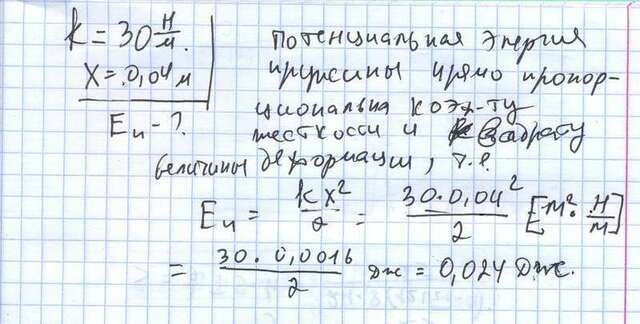 k = 30 Н/м.
x = 0,04 м
Eп - ?
Потенциальная энергия
пружины прямо пропор-
циональна коэф-ту
жесткости и квадрату
величины деформации, т.е.
Eп = kx²/2 = 30·0,04²/2 [м²·Н/м]
= 30·0,0016/2 Дж = 0,024 Дж.